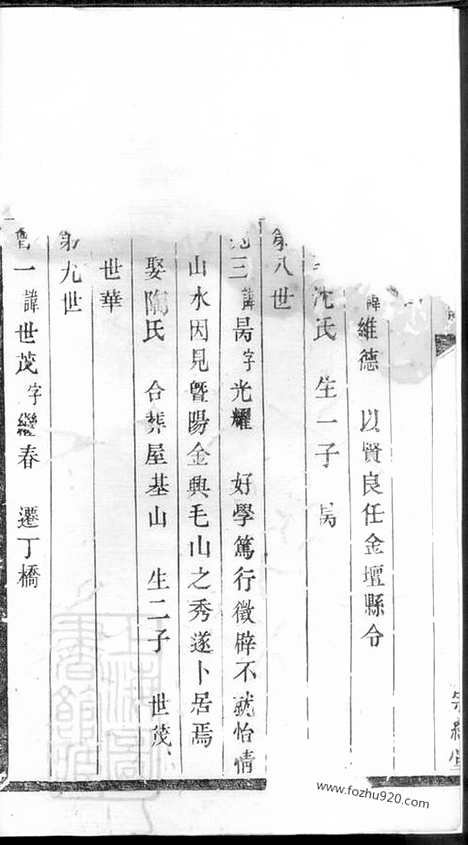 諱維德 以賢良任金壇縣令
沈氏 生一子 昺
第八世
三諱昺字光耀 好學篤行徵辟不就怡情
山水因見暨陽金興毛山之秀遂卜居焉
娶陶氏 合葬屋基山 生二子 世茂
世華
第九世
一諱世茂字繼春 遷丁橋
www.fozhu920.com